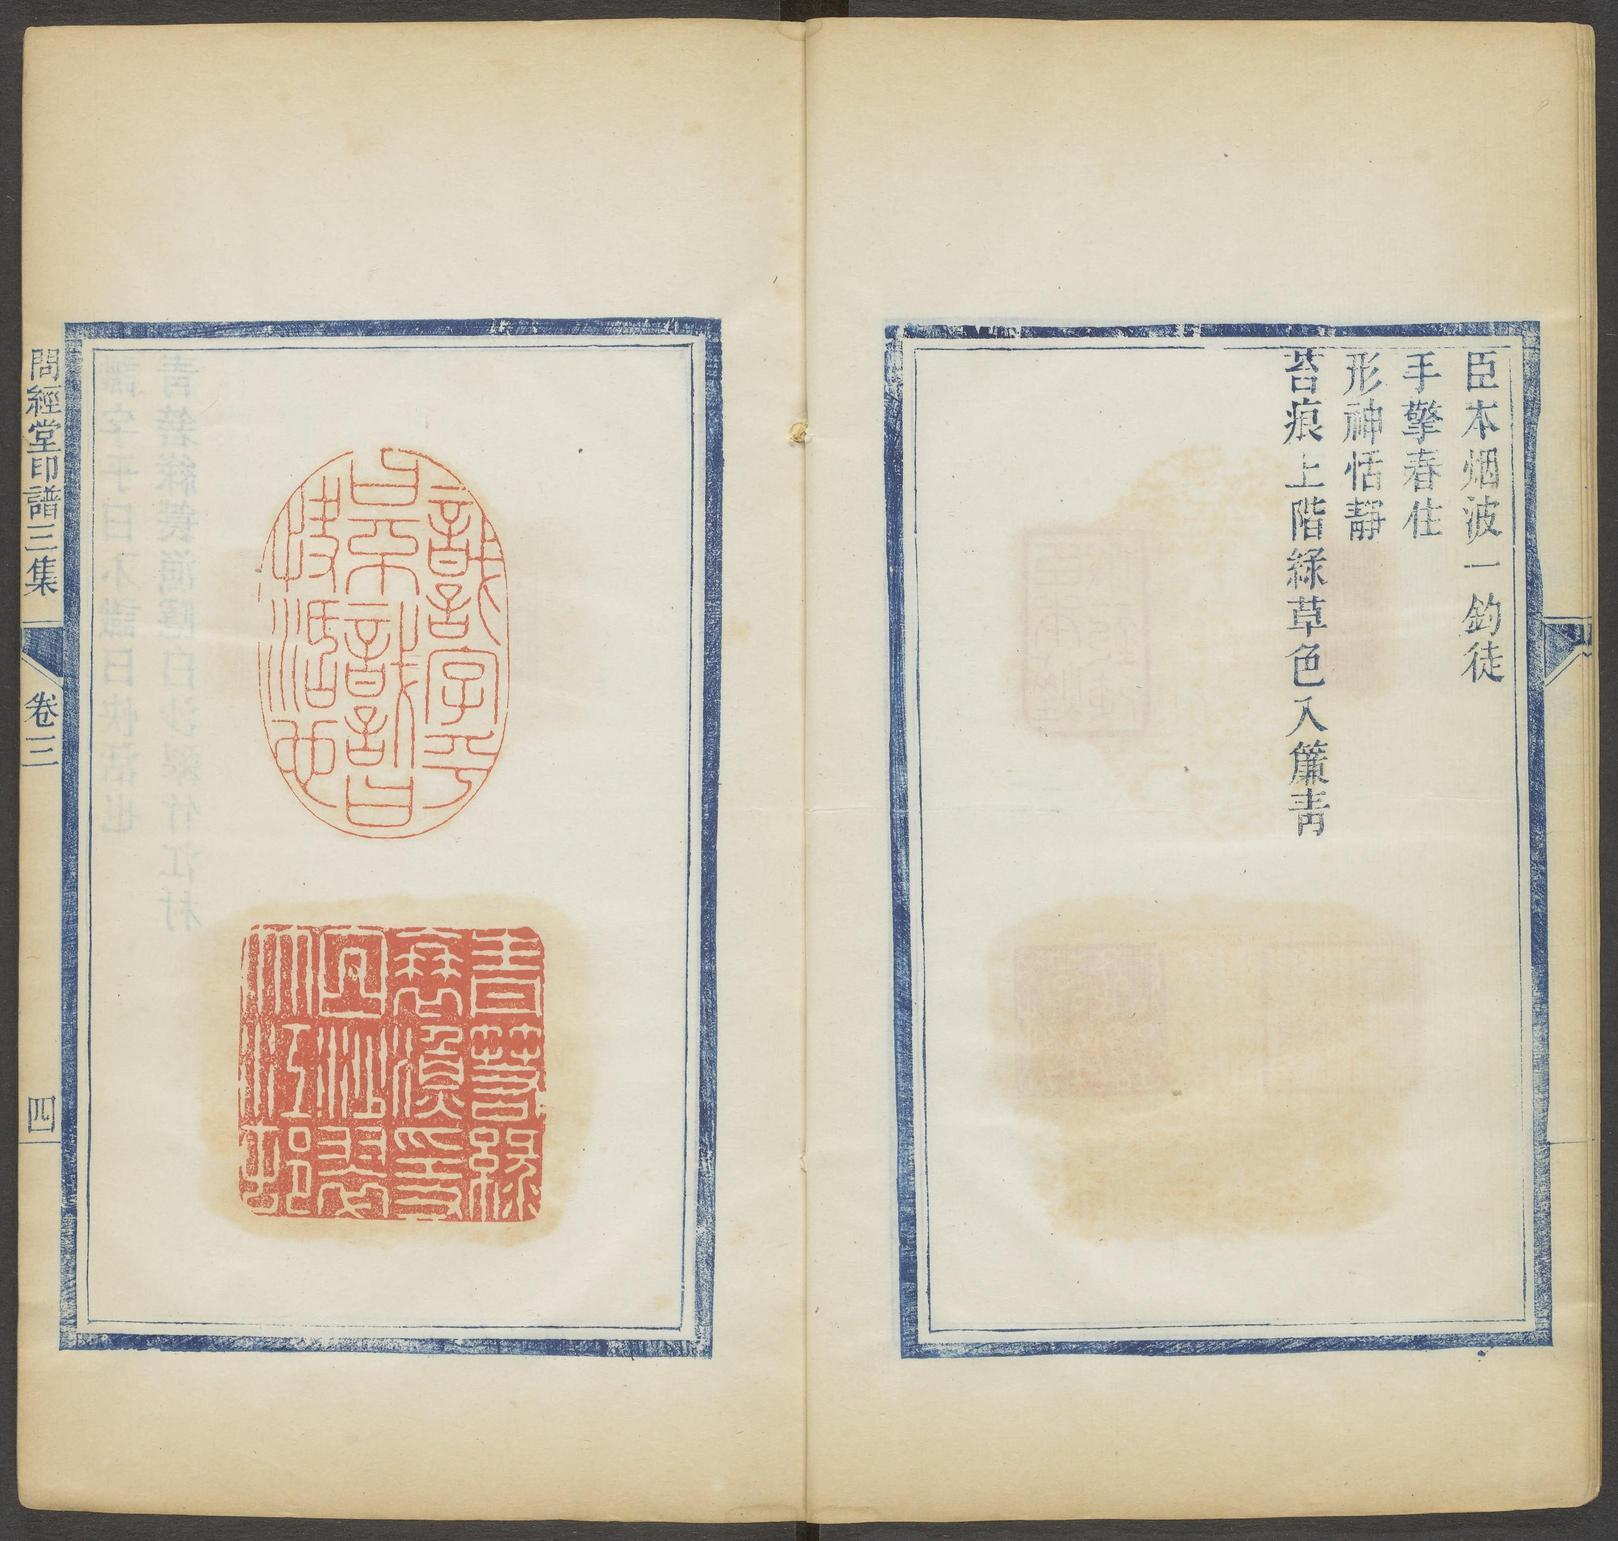 臣本烟波一釣徒
手擎春住
形神恬靜
苔痕上階綠草色入簾青
識字乎
曰不識曰
快活也
青箬綠
蓑漁隱
白沙翠
竹江村
問經堂印譜三集
卷三
四